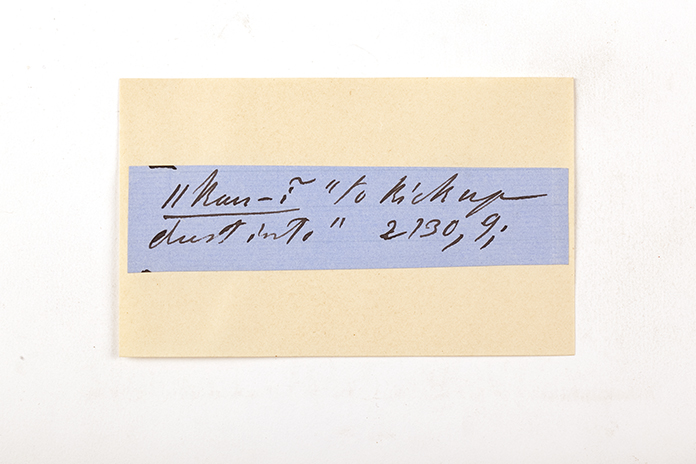 ǁkau-ĩ "to kick up
dust into" 2130, 9;